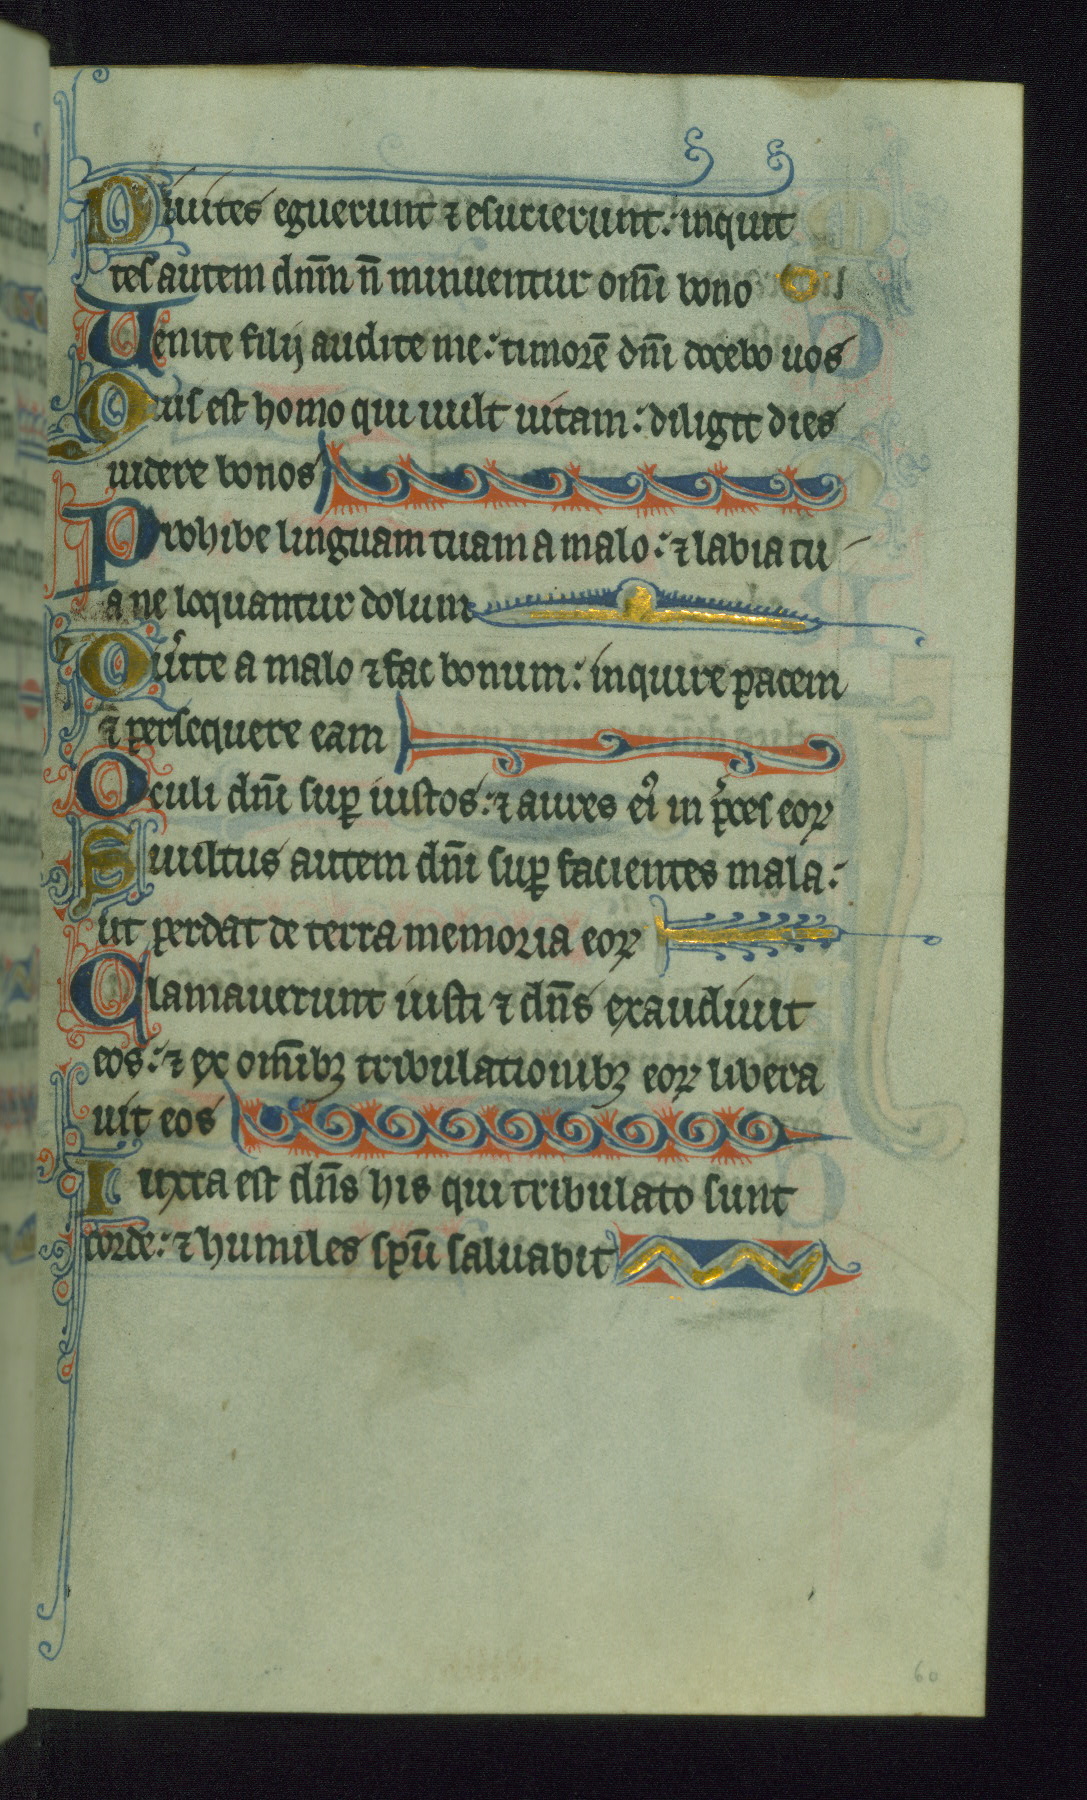 Diuites eguerunt ⁊ esurierunt: inquirē
tes autem dnm̄ n̄ minuentur om̄i bono
Uenite filij audite me: timorē dn̄i docebo uos
Quis est homo qui uult uitam: diligit dies
uidere bonos
Prohibe linguam tuam a malo: ⁊ labia tu
a ne loquantur dolum
Diu͛te a malo ⁊ fac bonum: inquire pacem
⁊ persequere eam
Oculi dn̄i sup̱ iustos: ⁊ aures ei᾽ in p͛ces eoꝝ
Uultus autem dn̄i sup̱ facientes mala:
ut perdat de terra memoria eoꝝ
Clamauerunt iusti ⁊ dn̄s exaudiuit
eos: ⁊ ex om̄ibꝫ tribulationibꝫ eoꝝ libera
uit eos
Iuxta est dn̄s his qui tribulato sunt
corde: ⁊ humiles sp̄u saluabit
60